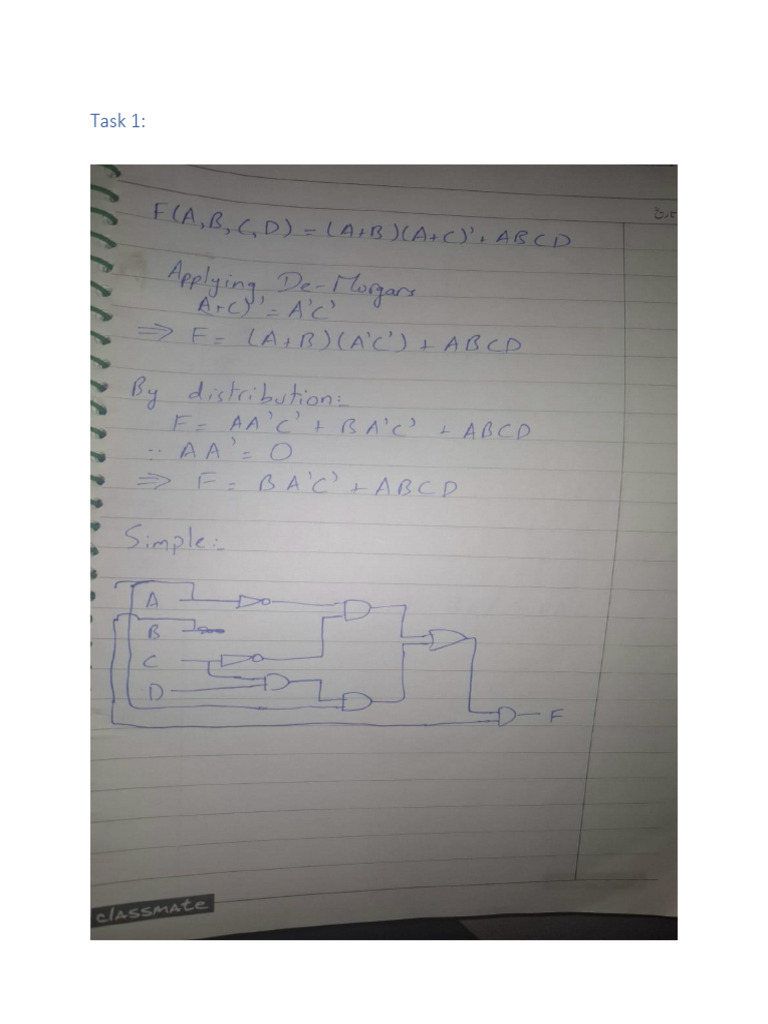 Task 1:
F(A,B,C,D) = (A+B)(A+C)'+ ABCD
Applying De-Morgans
A+C)' = A'C'
⇒ F = (A+B)(A'C') + ABCD
By distribution:-
F = AA'C' + BA'C' + ABCD
∵ AA' = 0
⇒ F = BA'C' + ABCD
Simple:-
A
B
C
D
F
classmate